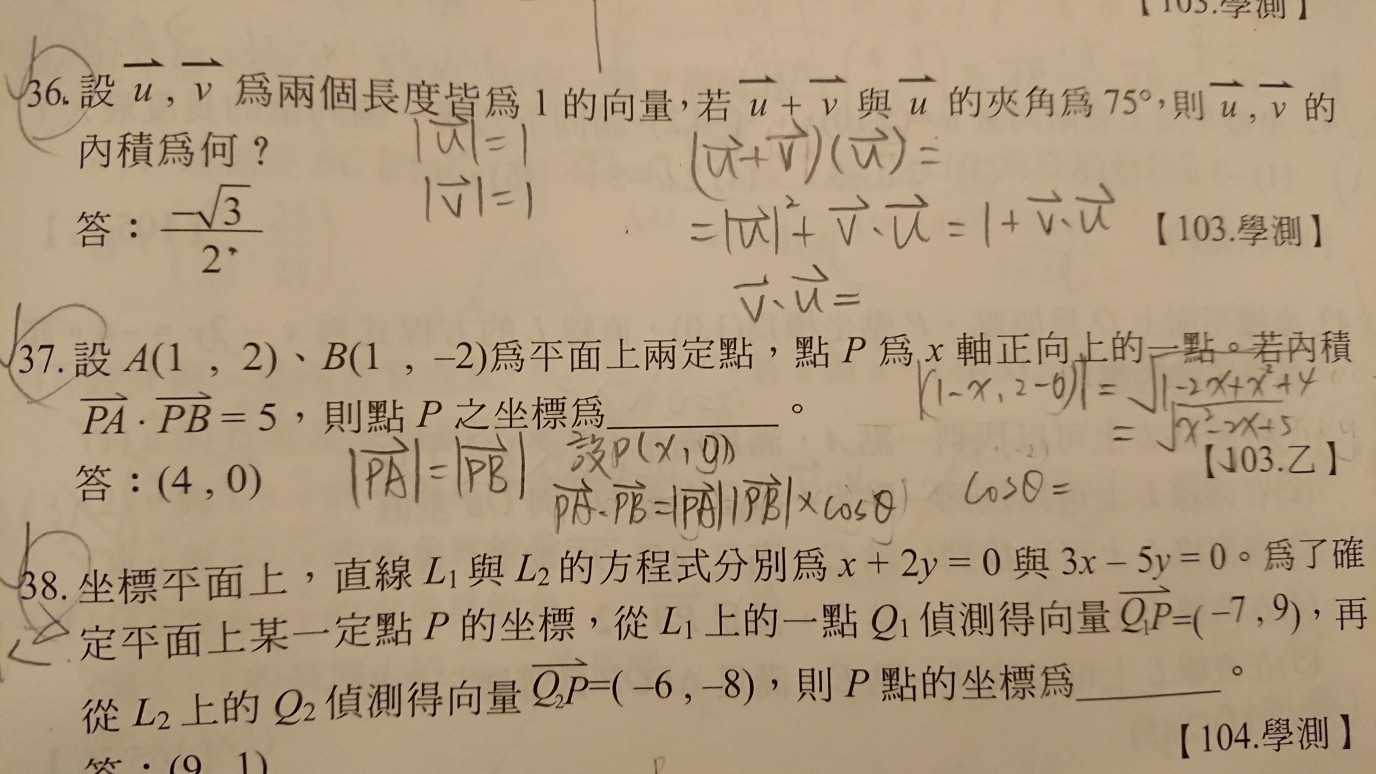 【103.學測】
36. 設 u⃗ , v⃗ 爲兩個長度皆爲 1 的向量，若 u⃗ + v⃗ 與 u⃗ 的夾角爲 75°，則 u⃗ , v⃗ 的
內積爲何？
|u⃗|=1
|v⃗|=1
(u⃗+v⃗)(u⃗)=
=|u⃗|²+v⃗·u⃗=1+v⃗·u⃗
v⃗·u⃗=
答：-√3/2
【103.學測】
37. 設 A(1 , 2)、B(1 , –2)爲平面上兩定點，點 P 爲 x 軸正向上的一點。若內積
PA⃗ · PB⃗ = 5，則點 P 之坐標爲________。
|(1-x, 2-0)| = √(1-2x+x²+4)
= √(x²-2x+5)
答：(4 , 0)
|PA⃗|=|PB⃗|
設P(x,y)
PA⃗·PB⃗=|PA⃗||PB⃗|×cosθ
cosθ=
【103.乙】
38. 坐標平面上，直線 L₁ 與 L₂ 的方程式分別爲 x + 2y = 0 與 3x – 5y = 0。爲了確
定平面上某一定點 P 的坐標，從 L₁ 上的一點 Q₁ 偵測得向量 Q₁P⃗=( –7 , 9)，再
從 L₂ 上的 Q₂ 偵測得向量 Q₂P⃗=( –6 , –8)，則 P 點的坐標爲________。
【104.學測】
答：(9, 1)